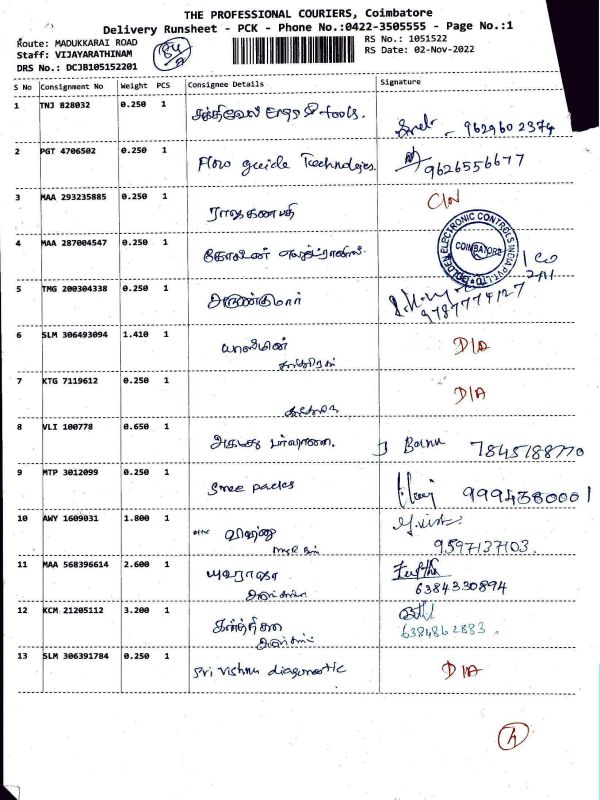 THE PROFESSIONAL COURIERS, Coimbatore
Delivery Runsheet - PCK - Phone No.:0422-3505555 - Page No.:1
Route: MADUKKARAI ROAD
RS No.: 1051522
Staff: VIJAYARATHINAM
RS Date: 02-Nov-2022
DRS No.: DCJB105152201
S No Consignment No Weight PCS Consignee Details Signature
1 TNJ 828032 0.250 1 சக்திவேல் tools. 9629602374
2 PGT 4706502 0.250 1 Flow guide Technologies. 9626556677
3 MAA 293235885 0.250 1 ராஜகணபதி
4 MAA 287004547 0.250 1 கோல்டன் எலக்ட்ரானிஸ்
GOLDEN ELECTRONIC CONTROLS INDIA PVT. LTD. COIMBATORE
2/11
5 TMG 200304338 0.250 1 அருண்குமார் 9787774727
6 SLM 306493094 1.410 1 யாஸ்மின் D/A
7 KTG 7119612 0.250 1 D/A
8 VLI 100778 0.650 1 அகமது J Banu 7845188770
9 MTP 3012099 0.250 1 Sree packs 9994380001
10 AWY 1609031 1.800 1 விஷ்ணு 9597137103.
11 MAA 568396614 2.600 1 யுவராஜா 6384330894
12 KCM 21205112 3.200 1 6384862883
13 SLM 306391784 0.250 1 Sri Vishnu diagonastic D/A
4